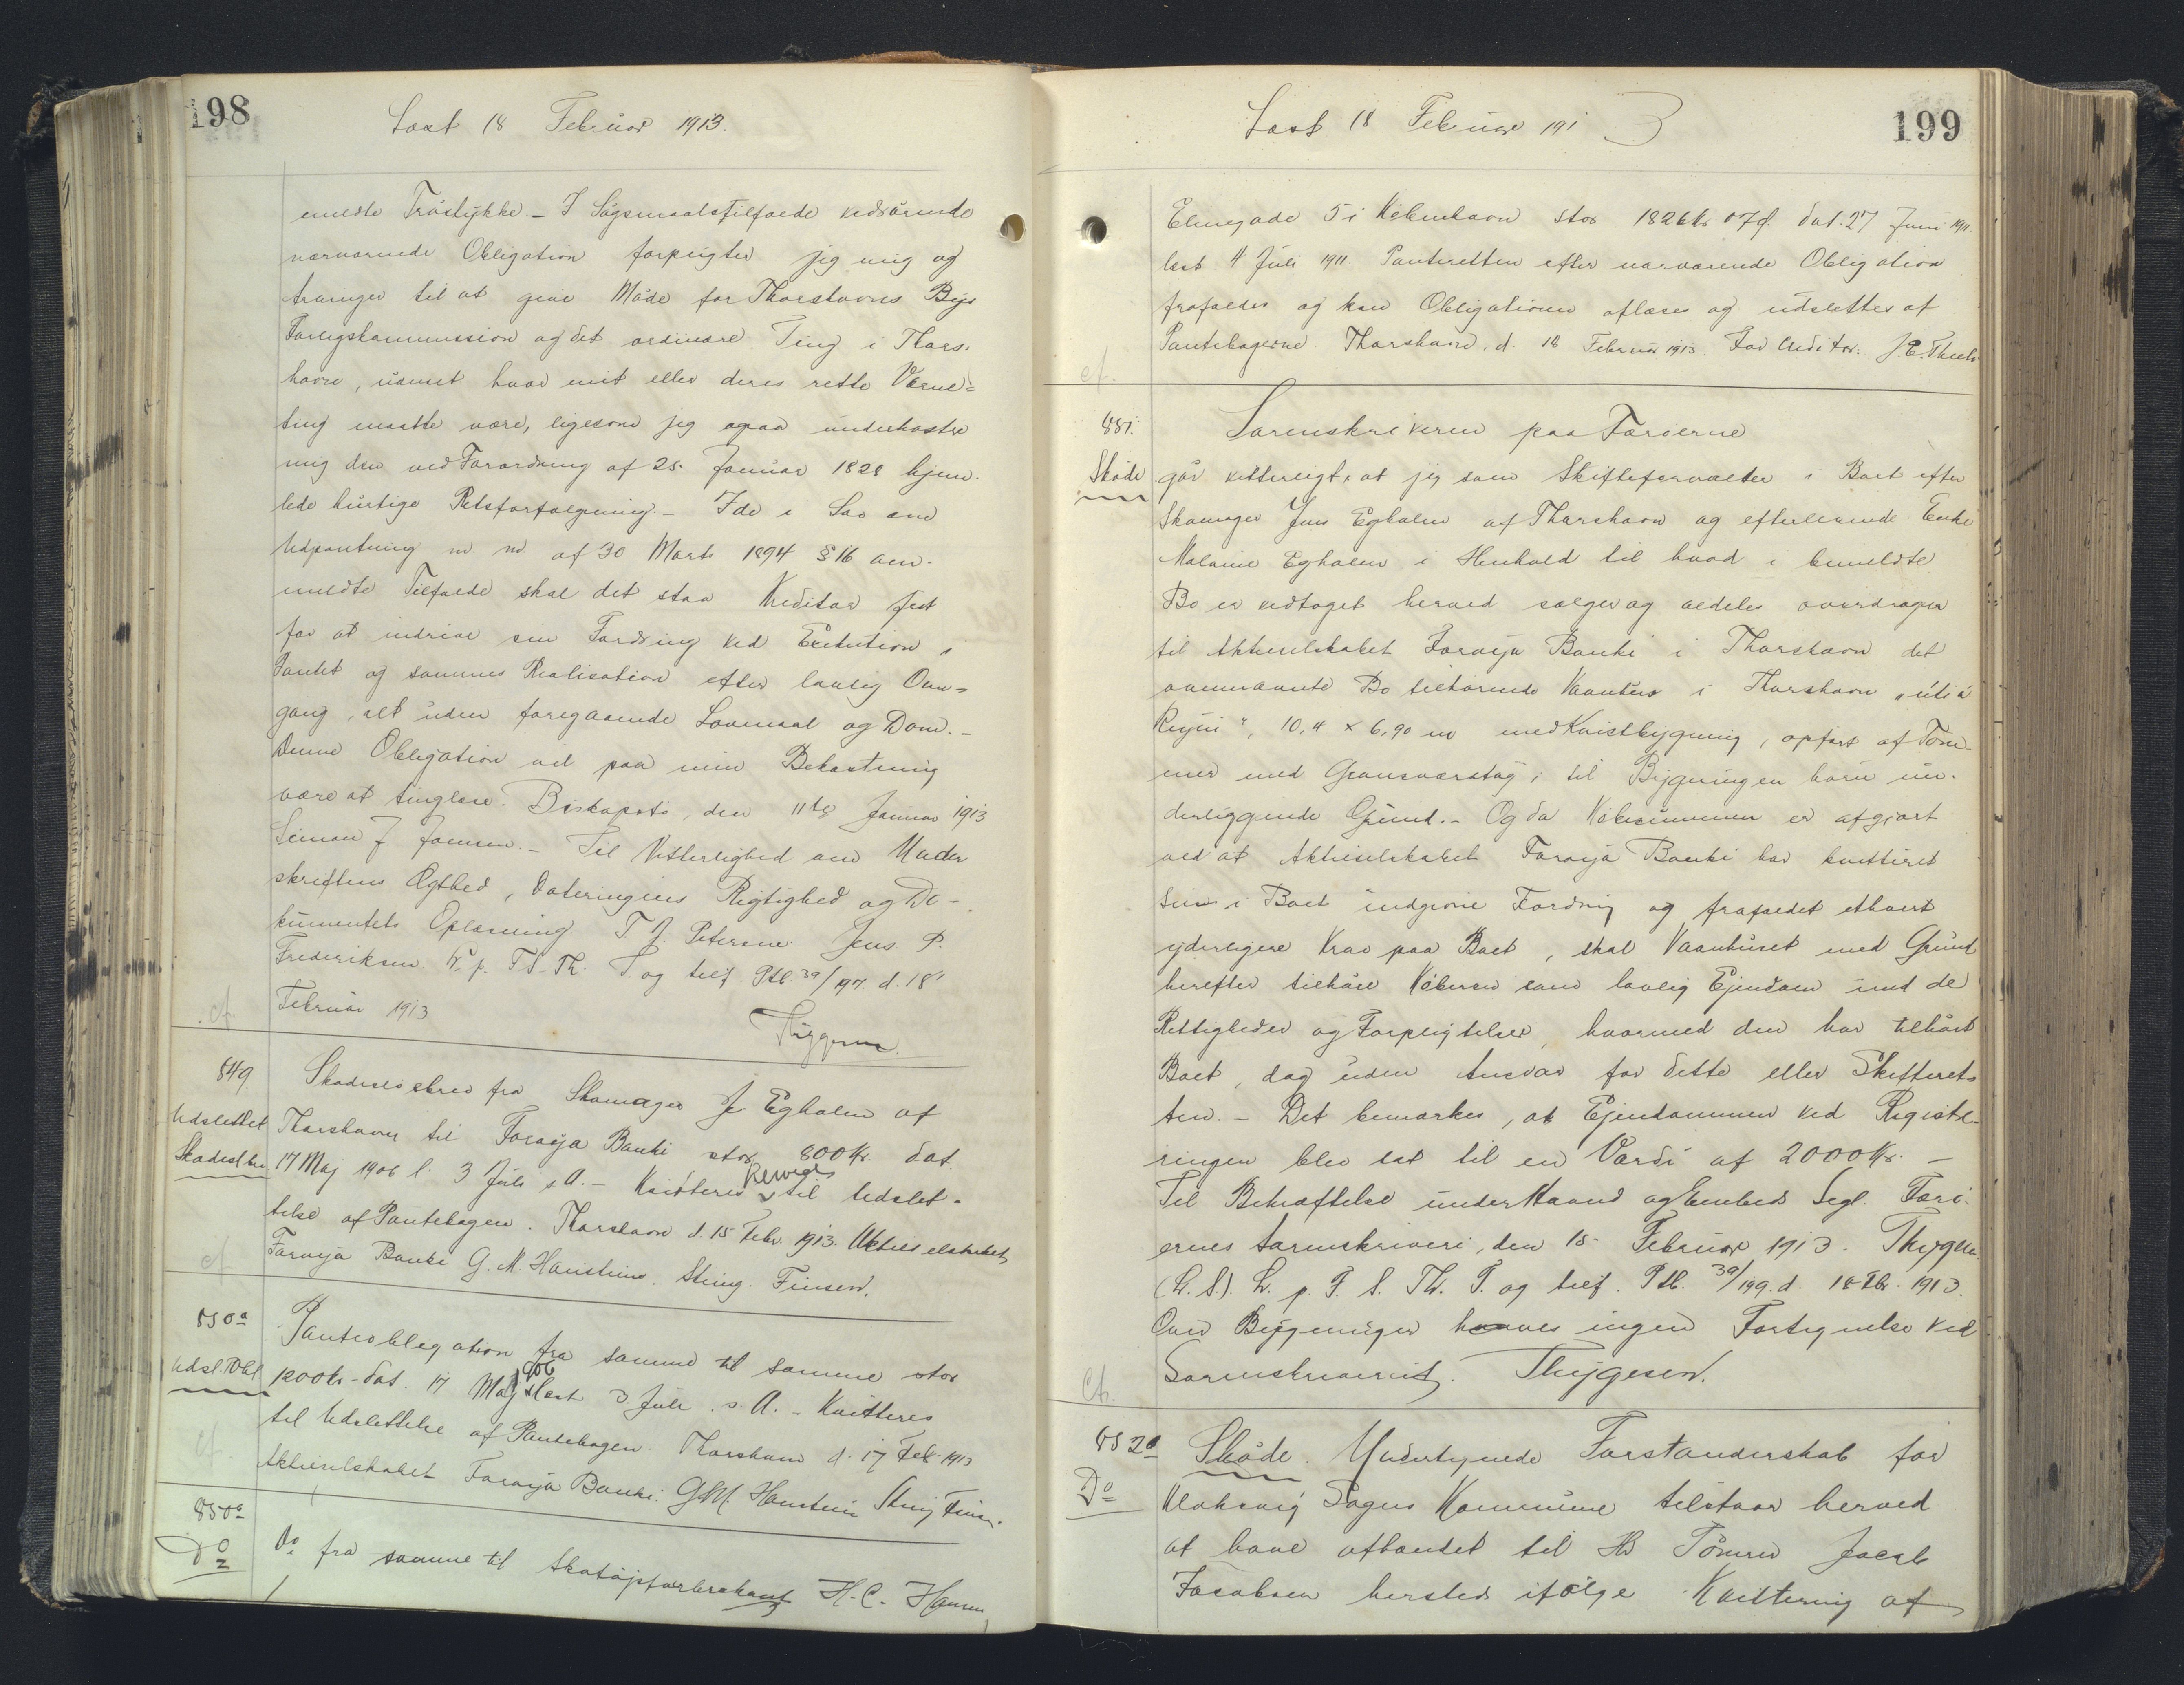 198
Læst 18 Februar 1913.
meldte Træstykke. – I Søgsmaalstilfælde vedrørende
nærværende Obligation forpligter jeg mig og
Arvinger til at give Møde for Thorshavns Bys
Forligskommission og det ordinære Ting i Thors-
havn, uanset hvor mit eller deres rette Værne=
ting maatte være, ligesom jeg ogsaa underkaster
mig den ved Forordning af 25. Januar 1828 hjem-
lede hurtige Retsforfølgning. – I de i Lov om
Udpantning m. m af 30 Marts 1894 § 16 om-
meldte Tilfælde skal det staa Kreditor frit
for at inddrive sin Fordring ved Exekution i
Pantet og sammes Realisation efter lovlig Om=
gang, alt uden foregaaende Lovmaal og Dom. –
Denne Obligation vil paa min Bekostning
være at tinglæse. Biskopstø, den 11te Januar 1913
Simon J Joensen. – Til Vitterlighed om Under
skriftens Ægthed, Dateringens Rigtighed og Do-
kumentets Oplæsning. T. J. Petersen. Jens P.
Frederiksen. L. p. F. S. Th. T. og tilf. Ptb. 39/197. d. 18'
Februar 1913
Thygesen.
cf.
849.
Udslettet
Skadeslbr
Skadesløsbrev fra Skomager J Egholm af
Thorshavn til Føroya Banki stor 800 Kr. dat.
17 Maj 1906 l. 3 Juli s A. – Kvitteres herved til Udslet-
telse af Pantebogen. Thorshavn d. 15 Febr. 1913. Aktieselskabet
Føroya Banki G. M. Hansteins. Sting. Finsen.
cf
850a
Udsl. Obl
Panteobligation fra samme til samme stor
1200 Kr - dat. 17 Maj 906 læst 3 Juli s. A. – Kvitteres
til Udslettelse af Pantebogen. Thorshavn d. 17 Feb 1913
Aktieselskabet Føroya Banki. G M. Hanstein Sting Finsen.
cf
850b
Do
Do fra samme til Skotøjsfabrikant H. C. Hansen,
Læst 18 Februar 1913
199
Elmegade 5 i København stor 1826 Kr 07 Ø. dat. 27 Juni 1911.
læst 4 Juli 1911. Panteretten efter nærværende Obligation
frafaldes og kan Obligationen aflæses og udslettes af
Pantebøgerne Thorshavn. d. 18 Februar 1913. For Creditor.
cf.
851.
Skøde
Sorenskriveren paa Færøerne
gør vitterligt, at jeg som Skifteforvalter i Boet efter
Skomager Jens Egholm af Thorshavn og efterlevende Enke
Malene Egholm i Henhold til hvad i bemeldte
Bo er vedtaget herved sælger og aldeles overdrager
til Aktieselskabet Føroya Banki i Thorshavn det
ovennævnte Bo tilhørende Vaanhus i Thorshavn „úti á
Reyni", 10,4 x 6,90 m med Kvistbygning, opført af Tøm-
mer med Grønsværstag; til Bygningen hører un-
derliggende Grund. – Og da Købesummen er afgjort
ved at Aktieselskabet Føroya Banki har kvitteret
sin i Boet indgivne Fordring og frafaldet ethvert
yderligere Krav paa Boet, skal Vaanhuset med Grund
herefter tilhøre Køberen som lovlig Ejendom med de
Rettigheder og Forpligtelser, hvormed den har tilhørt
Boet, dog uden Ansvar for dette eller Skifteret-
ten. – Det bemærkes, at Ejendommen ved Registe-
ringen blev sat til en Værdi af 2000 Kr. –
Til Bekræftelse under Haand og Embeds Segl. Færø-
ernes Sorenskriveri, den 15. Februar 1913. Thygesen
(L. S.). L. p. F. S. Th. T. og tilf. Ptb. 39/199. d. 18 Fbr. 1913.
Over Bygninger haves ingen Fortegnelse ved
Sorenskriveriet. Thygesen.
cf.
852a
Do
Skøde. Undertegnede Forstanderskab for
Klaksvig Sogns Kommune tilstaar herved
at have afhændet til Hr Tømrer Jacob
Jacobsen hersteds ifølge Kvittering af